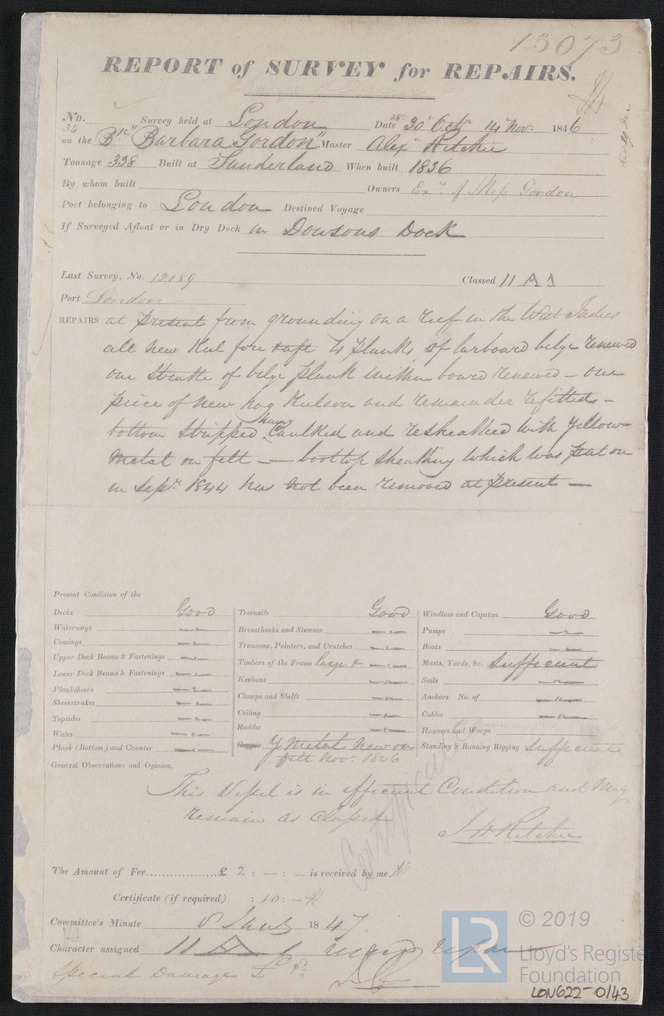 13073
REPORT of SURVEY for REPAIRS.
No. 34 Survey held at London Date 28 30 Octr 14 Novr. 1846
on the Bk "Barbara Gordon" Master Alexr Ritchie
Tonnage 338 Built at Sunderland When built 1836
By whom built Owners Exrs of Miss Gordon
Port belonging to London Destined Voyage
If Surveyed Afloat or in Dry Dock in Dowsons Dock
Last Survey, No. 12189 Classed 11 A 1
Port London
REPAIRS at present from grounding on a reef in the West Indies
all new Keel fore 4 planks of larboard bilge renewed
one Strake of bilge plank within board renewed – one
piece of new hog Keelson and remainder refitted –
bottom Stripped Caulked and resheathed with Yellow
Metal on felt – boottop sheathing which was put on
in Septr 1844 has not been removed at present –
Present Condition of the
Decks Good
Waterways
Comings
Upper Deck Beams & Fastenings
Lower Deck Beams & Fastenings
Planksheers
Sheerstrakes
Topsides
Wales
Plank (Bottom) and Counter
Treenails Good
Breasthooks and Stemson
Transoms, Pointers, and Crutches
Timbers of the Frame large &
Keelsons
Clamps and Shelfs
Ceiling
Rudder
Y Metal New on
felt Novr. 1846
Windlass and Capstan Good
Pumps
Boats
Masts, Yards, &c. Sufficient
Sails
Anchors No. of
Cables
Hawsers and Warps
Standing & Running Rigging Sufficient
General Observations and Opinion,
This Vessel is in efficient Condition and May
remain as classed
J H Ritchie
The Amount of Fee............... £ 2 : – : – is received by me
Certificate (if required) : 10 : –
Committee's Minute 8 Jany 1847
Character assigned 11 A
Special Damage
© 2019
LR
Lloyd's Register
Foundation
LON622-0143